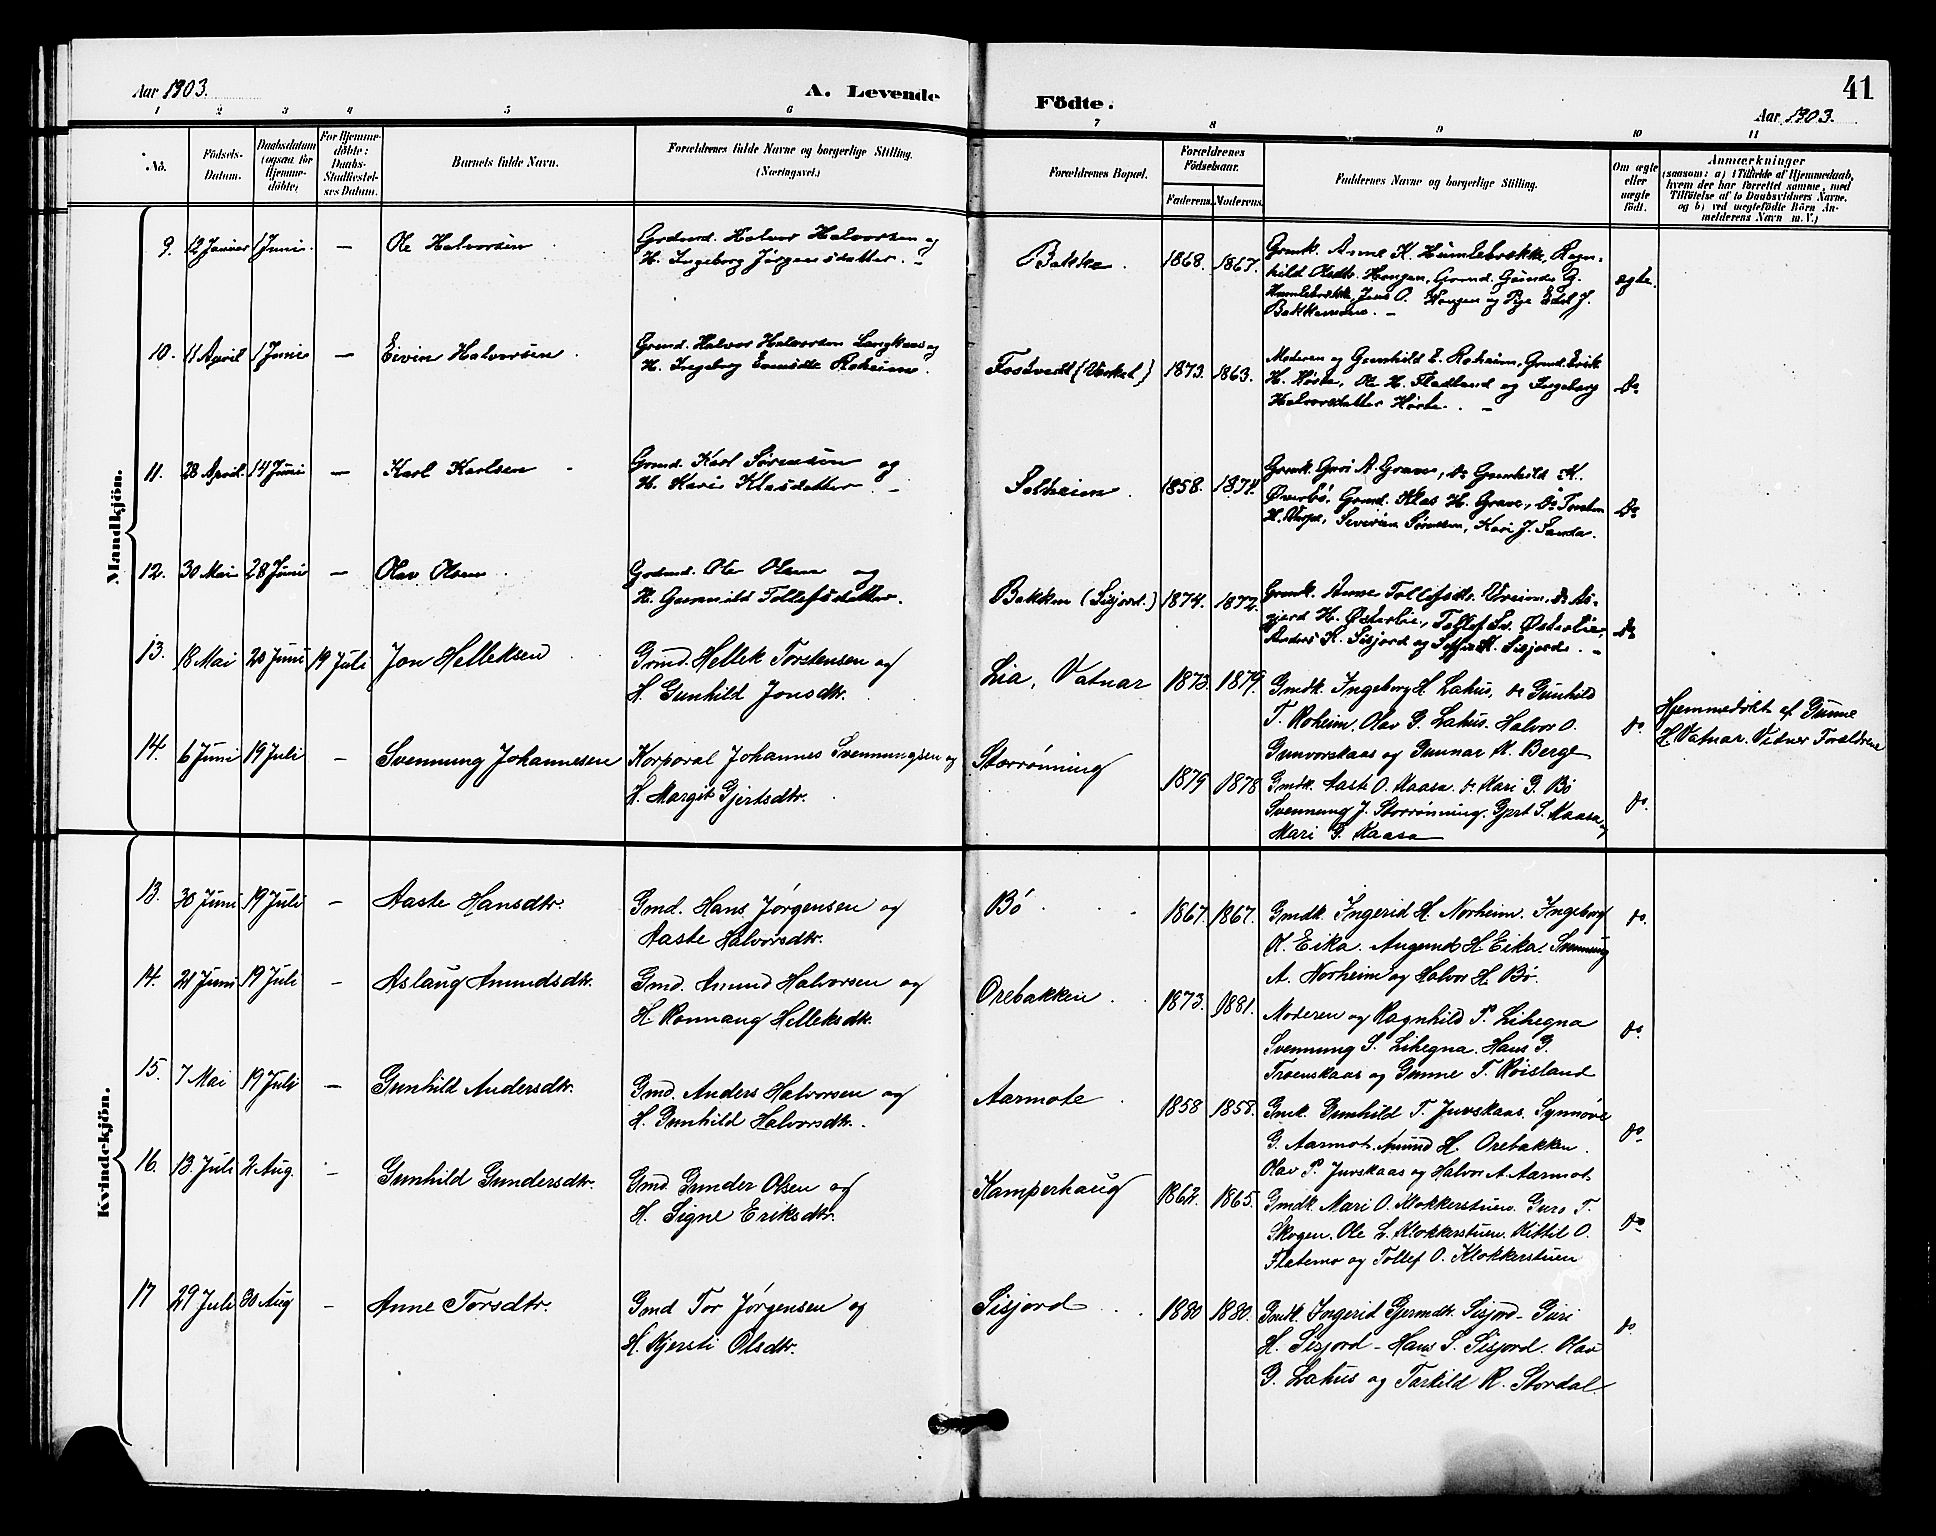 Aar 1903.
A. Levende
Födte.
41
Aar 1903.
1 2 3 4 5 6 7 8 9 10 11
No.
Födsels-
Datum.
Daabsdatum
(ogsaa for
Hjemme-
döbte)
For Hjemme-
döbte:
Daabs-
Stadfæstel-
ses Datum.
Barnets fulde Navn.
Forældrenes fulde Navne og borgerlige Stilling.
(Næringsvei.)
Forældrenes Bopæl.
Forældrenes
Födselsaar.
Faderens.
Moderens.
Faddernes Navne og borgerlige Stilling.
Om ægte
eller
uægte
födt.
Anmærkninger
(saasom: a) i Tilfælde af Hjemmedaab,
hvem der har forrettet samme, med
Tilföielse af to Daabsvidners Navne,
og b) ved uægtefödte Börn An-
melderens Navn m. V.)
Mandkjön.
9. 12 Januar 1 Juni. — Ole Halvorsen
Gbdmd. Halvor Halvorsen og
H. Ingeborg Jørgensdatter. —
Bakka. 1868. 1867.
Gmk. Anne K. Humlebrække, Ragn-
hild Olsdtr. Haugen, Grmd. Gunder G.
Humlebrække, Jens O. Haugen og Pige Edel J.
Bakkemoen. —
ægte.
10. 11 April 1 Juni — Eivin Halvorsen
Grmd. Halvor Halvorsen Langkaas og
H. Ingeborg Evensdtr Roheim.
Fostvedt (Verket) 1873. 1863.
Moderen og Gunhild E. Roheim, Grmd. Erik
H. Hørte, Ole H. Fladland og Ingeborg
Halvorsdatter Hørte. —
do
11. 28 April. 14 Juni — Karl Karlsen
Grmd. Karl Sørensen og
H. Kari Klasdatter. —
Solheim. 1858. 1874.
Grmk. Guri A. Grave, do Gunhild K.
Øverbø. Grmd. Klas H. Grave, do Torsten
H. Verpe, Severin Sørensen, Kari J. Sanda.
do
12. 30 Mai 28 Juni — Olav Olsen
Gbdmd. Ole Olsen og
H. Gunnild Tollefsdatter.
Bakken (Sisjord.) 1874. 1872.
Grmk. Anne Tollefsdtr. Vreim, do As-
gjerd H. Østerlie, Tollef Sv. Østerlie,
Anders K. Sisjord og Sofie K. Sisjord. —
do
13. 18 Mai 28 Juni 19 Juli Jon Helleksen
Gmd. Hellek Torstensen og
H Gunhild Jonsdtr.
Lia, Vatnar 1873. 1879.
Gmdk. Ingeborg H. Lahus, do Gunhild
T. Roheim. Olav G. Lahus. Halvor O.
Gunvorskaas og Gunnar K. Berge
do
Hjemmedøbt af Gunne
H. Vatnar. Vidner Forældrene
14. 6 Juni 19 Juli — Svennung Johannesen
Korporal Johannes Svennungsen og
H. Margit Gjertsdtr.
Storrønning 1879 1878
Gmdk. Aaste O. Kaasa. do Kari G. Bø
Svennung J. Storrønning. Gjert S. Kaasa og
Mari G. Kaasa
do.
Kvindekjön.
13. 30 Juni 19 Juli — Aaste Hansdtr.
Gmd. Hans Jørgensen og
Aaste Halvorsdtr.
Bø 1867. 1867.
Gmdk. Ingerid H. Norheim. Ingeborg
O. Eika. Augund H. Eika. Svennung
A. Norheim og Halvor H. Bø.
do.
14. 21 Juni 19 Juli — Aslaug Amundsdtr.
Gmd. Amund Halvorsen og
H. Rannaug Helleksdtr.
Orebakken 1873. 1881.
Moderen og Ragnhild P. Lihegna
Svennung S. Lihegna. Hans G.
Troenskaas og Gunne T. Røisland
do
15. 7 Mai 19 Juli — Gunhild Andersdtr.
Gmd. Anders Halvorsen og
H. Gunhild Halvorsdtr.
Aarmote 1858 1858.
Gmk. Gunhild T. Juvskaas. Synnøve
G. Aarmot. Amund H. Orebakken.
Olav P. Juvskaas og Halvor A. Aarmot
do
16. 13. Juli 2 Aug. — Gunhild Gundersdtr.
Gmd. Gunder Olsen og
H. Signe Eriksdtr.
Kamperhaug 1862. 1865.
Gmdk. Mari O. Klokkerstuen. Guro T.
Skogen. Ole L. Klokkerstuen. Kittil O.
Flatemo og Tollef O. Klokkerstuen
do
17 29 Juli 30 Aug — Anne Torsdtr.
Gmd Tor Jørgensen og
H. Kjersti Olsdtr.
Sisjord 1880 1880.
Gmk. Ingerid Gjermdtr. Sisjord - Guri
H. Sisjord - Hans S. Sisjord. Olav
G. Lahus og Tarkild R. Stordal
do.